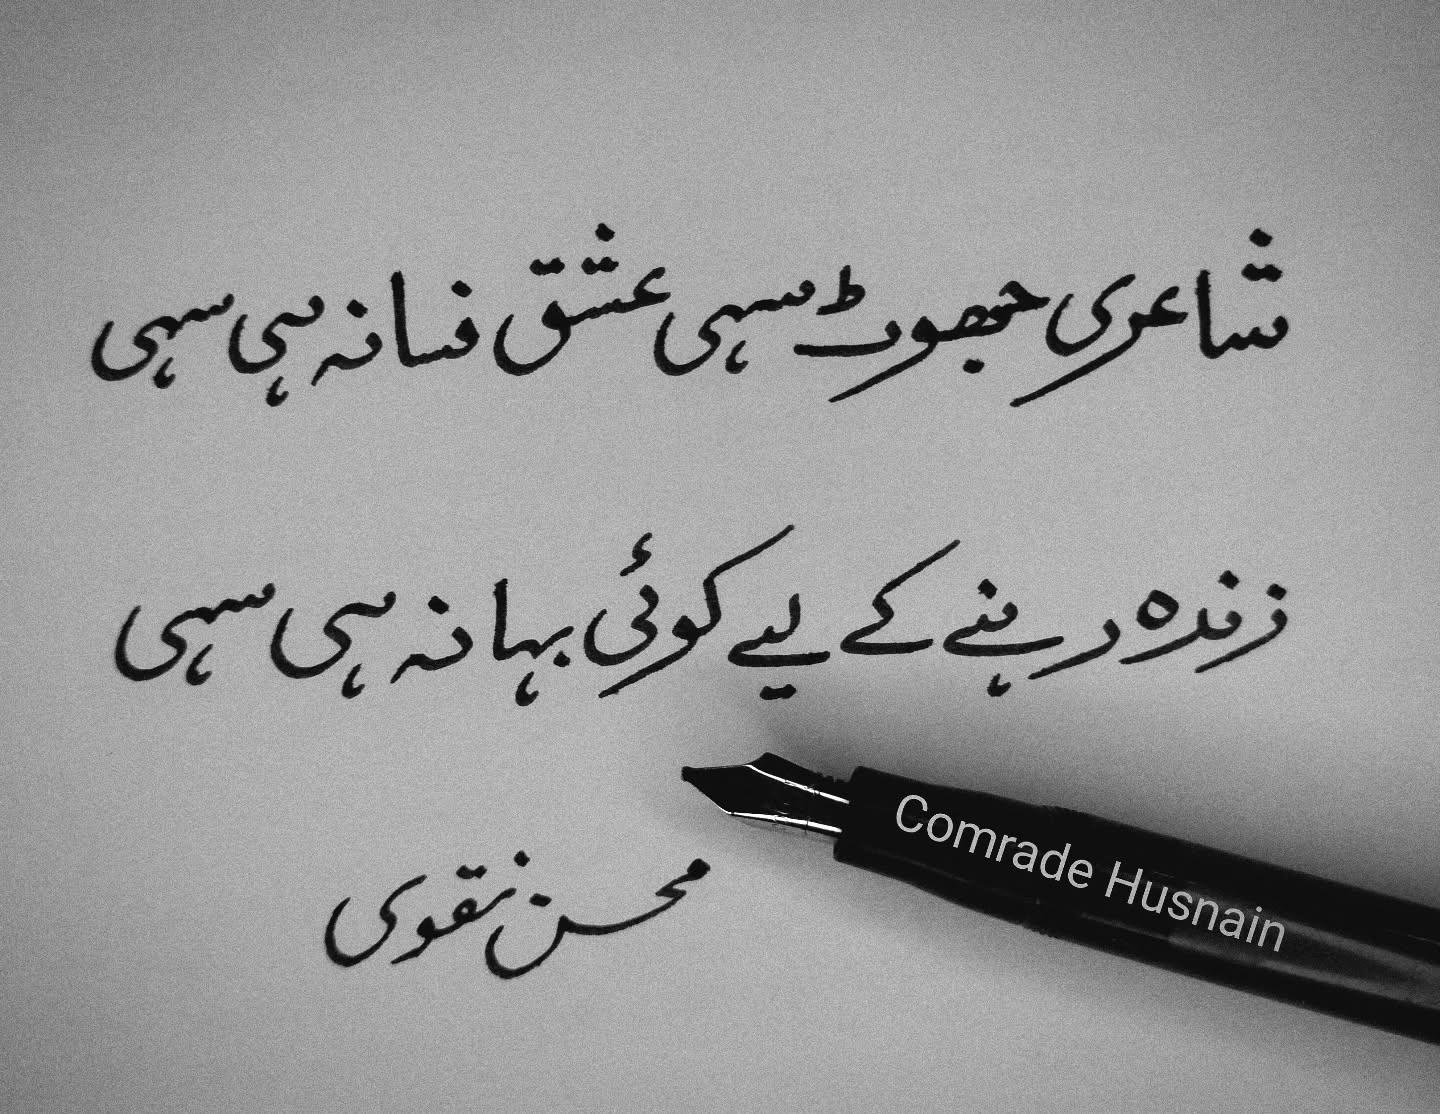 شاعری جھوٹ سہی عشق فسانہ ہی سہی
زندہ رہنے کے لیے کوئی بہانہ ہی سہی
محسن نقوی
Comrade Husnain